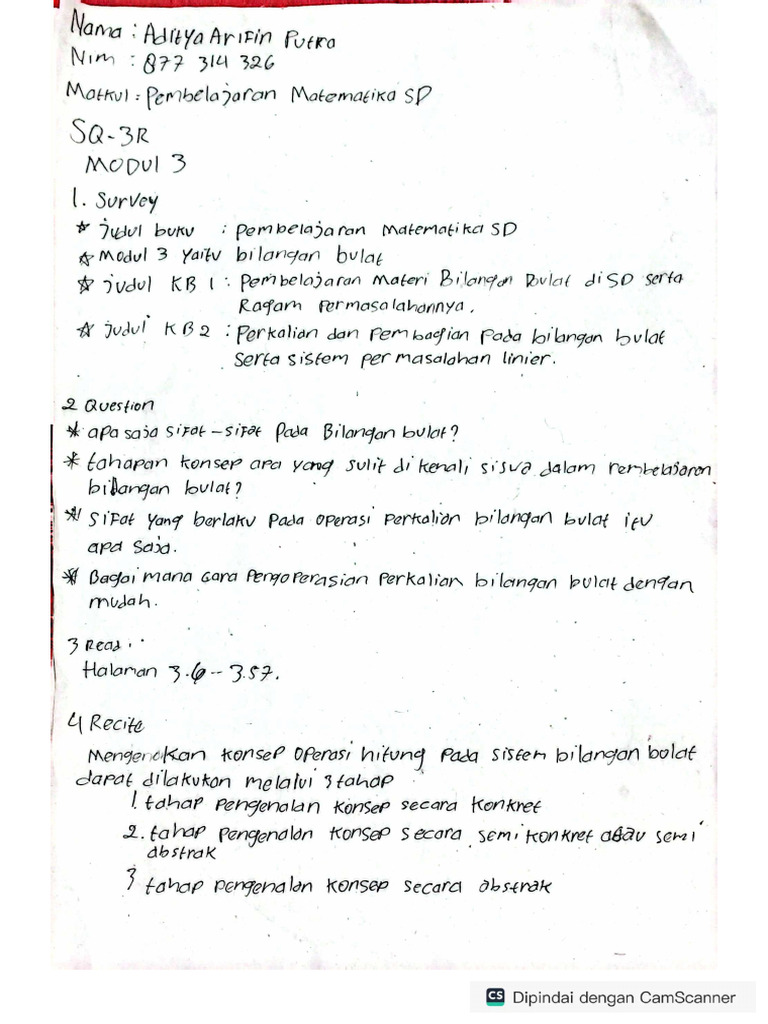 Nama : Aditya Arifin Putra
Nim : 877 314 326
Matkul : Pembelajaran Matematika SD
SQ-3R
MODUL 3
1. Survey
* judul buku : Pembelajaran Matematika SD
* Modul 3 yaitu bilangan bulat
* judul KB 1 : Pembelajaran Materi Bilangan Bulat di SD serta
Ragam Permasalahannya.
* judul KB 2 : Perkalian dan Pembagian pada bilangan bulat
serta sistem permasalahan linier.
2 Question
* apa saja sifat-sifat Pada Bilangan bulat?
* tahapan konsep apa yang sulit di kenali siswa dalam Pembelajaran
bilangan bulat?
* Sifat yang berlaku pada operasi perkalian bilangan bulat itu
apa saja.
* Bagai mana cara Pengoperasian Perkalian bilangan bulat dengan
mudah.
3 Read.
Halaman 3.6 - 3.57.
4 Recite
Mengenalkan konsep operasi hitung pada sistem bilangan bulat
dapat dilakukan melalui 3 tahap
1. tahap pengenalan konsep secara konkret
2. tahap pengenalan konsep secara semi konkret atau semi
abstrak
3 tahap pengenalan konsep secara abstrak
CS Dipindai dengan CamScanner